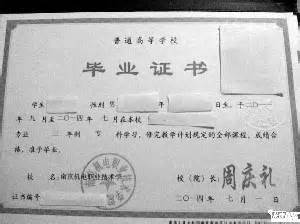 普通高等学校
毕业证书
学生 性别 年 月 日生，于二〇一
年九月至二〇一四年七月在本校
专业 三年制 专科学习，修完教学计划规定的全部课程，成绩合
格，准予毕业。
校 名：南京机电职业技术学 校（院）长：周庆礼
证书编号 二〇一四年 七月 一日